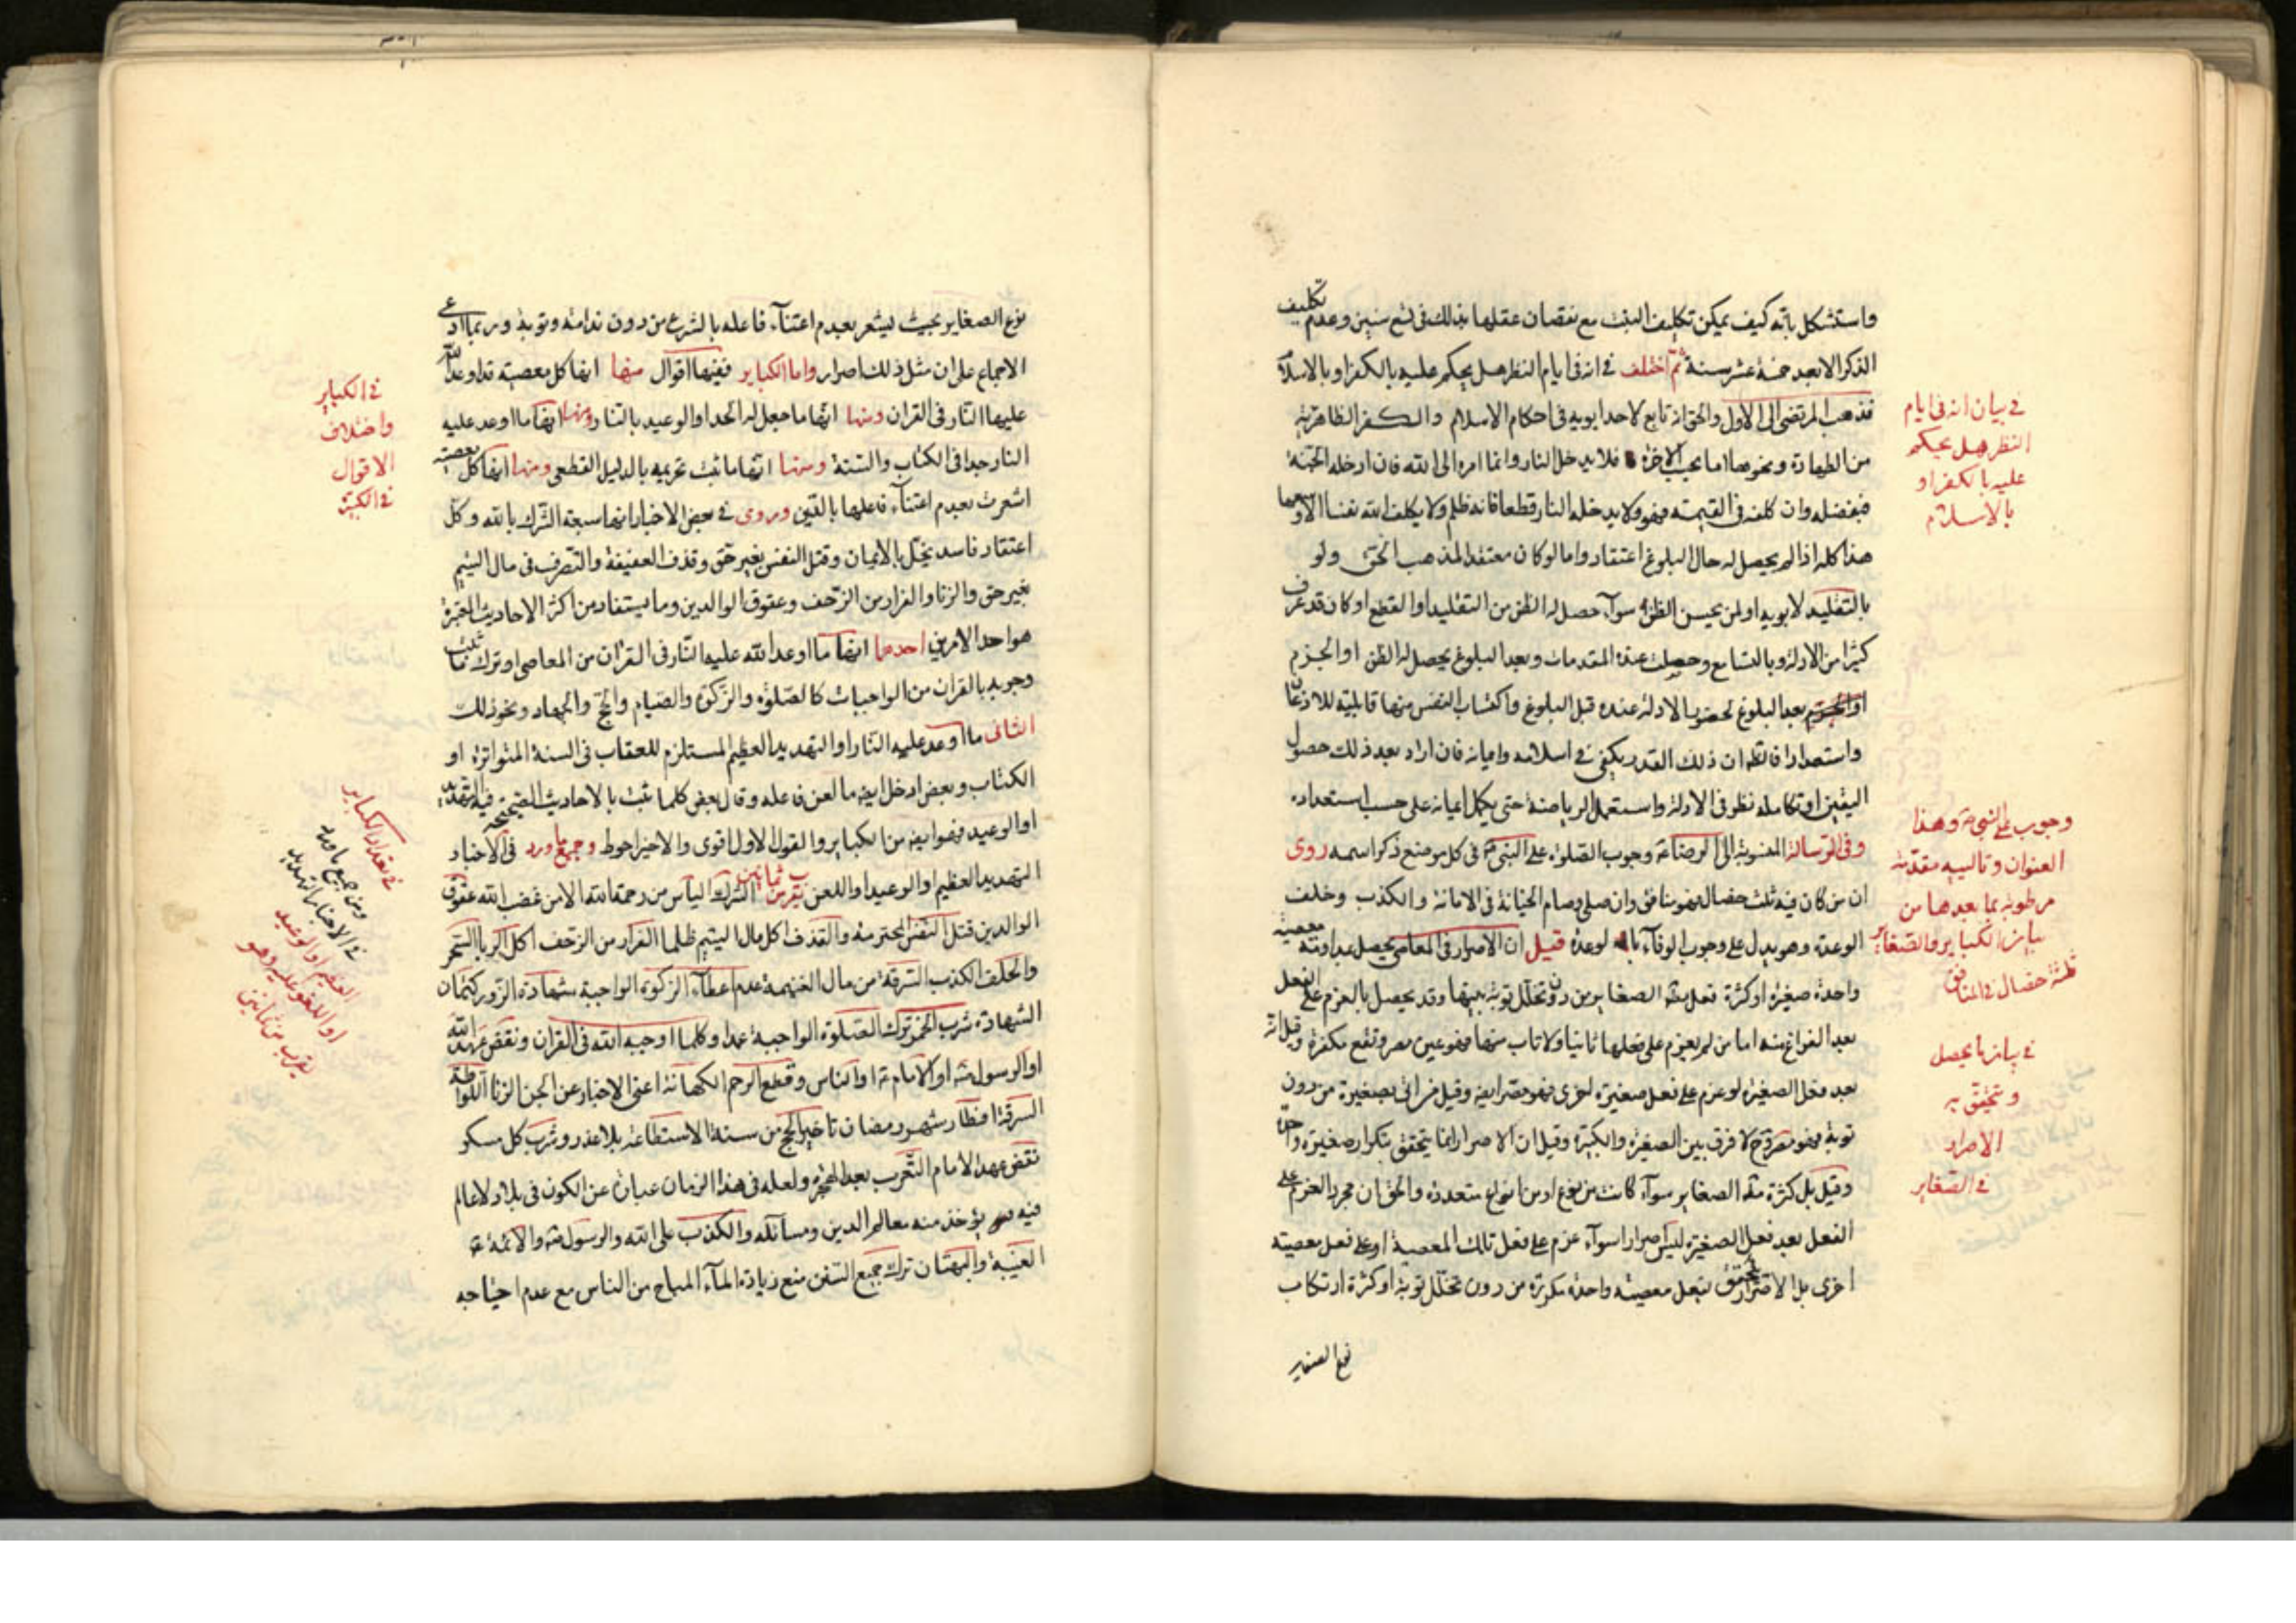 واستشكل بانه كيف يمكن تكليف البنت مع نقصان عقلها بذلك فى تسع سنين وعدم تكليف
الذكر الا بعد خمسة عشر سنة ثم اختلف في انه فى ايام النظر هل يحكم عليه بالكفر او بالاسلام
فذهب المرتضى الى الاول والحق انه تابع لاحد ابويه فى احكام الاسلام والكفر الظاهرية
من الطهارة ونحوها اما بحسب الاخرة فلا يدخل النار وانما امره الى الله فان ادخله الجنة
فبفضله وان كلفه فى القيمة فهو ولا يدخله النار قطعا فانه ظلم ولا يكلف الله نفسا الا وسعها
هذا كله اذا لم يحصل له حال البلوغ اعتقاد واما لو كان معتقدا لمذهب الحق ولو
بالتقليد لابويه او لمن يحسن الظن به سوآء حصل له الظن من التقليد او القطع او كان قد عرف
كثيرا من الادلة وبالتسامع وحصلت عنده المقدمات وبعد البلوغ يحصل له الظن او الجزم
بعد البلوغ لحضور الادلة عنده قبل البلوغ واكتساب النفس منها قابلية للاذعان
واستعدادا فالظ ان ذلك القدر يكفى في اسلامه وايمانه فان اراد بعد ذلك حصول
اليقين او تكامله نظر فى الادلة واستعمل الرياضة حتى يكمل ايمانه على حسب استعداده
وفى الرسالة المنسوبة الى الرضا وجوب الصلوة على النبى فى كل موضع ذكر اسمه روى
ان من كان فيه ثلث خصال فهو منافق وان صلى وصام الخيانة فى الامانة والكذب وخلف
الوعد وهو يدل على وجوب الوفآء لوعده قيل ان الاصرار فى المعاصى يحصل بمداومة معصية
واحدة صغيرة او كثرة فعل الصغاير من دون تخلل توبة بينها وقد يحصل بالعزم على الفعل
بعد الفراغ منه اما من لم يعزم على فعلها ثانيا ولا تاب منها فهو غير مصر وتقع مكفرة وقيل انه
بعد فعل الصغيرة لو عزم على فعل صغيرة اخرى فهو مصر ايضا وقيل من اتى بصغيرة من دون
توبة فهو مصر ولا فرق بين الصغيرة والكبيرة وقيل ان الاصرار انما يتحقق بتكرار صغيرة واحدة
وقيل بل كثرة الصغاير سوآء كانت من نوع او من انواع متعددة والحق ان مجرد العزم على
الفعل بعد فعل الصغيرة ليس اصرارا سوآء عزم على فعل تلك المعصية او على فعل معصية
اخرى بل الاصرار يتحقق بفعل معصية واحدة مكررة من دون تخلل توبة او كثرة ارتكاب
نوع الصغاير
في بيان انه فى ايام
النظر هل يحكم
عليه بالكفر او
بالاسلام
وجوب على النبى وهذا
العنوان وتاليه مقدمة
مربوطة بما بعدها من
بيان الكباير والصغاير
ثلثة خصال في المنافق
في بيان ما يحصل
و يتحقق به
الاصرار
في الصغاير
نوع الصغاير بحيث يشعر بعدم اعتنآء فاعله بالشرع من دون ندامة وتوبة وربما ادعى
الاجماع على ان مثل ذلك اصرار واما الكباير ففيها اقوال منها انها كل معصية توعد الله
عليها النار فى القران ومنها انها ما جعل له الحد او الوعيد بالنار ومنها انها ما اوعد عليه
النار جدا فى الكتاب والسنة ومنها انها ما ثبت تحريمه بالدليل القطعى ومنها انها كل معصية
اشعرت بعدم اعتنآء فاعلها بالدين وروى في بعض الاخبار انها سبعة الشرك بالله وكل
اعتقاد فاسد يخل بالايمان وقتل النفس بغير حق وقذف العفيفة والتصرف فى مال اليتيم
بغير حق والزنا والفرار من الزحف وعقوق الوالدين وما يستفاد من اكثر الاحاديث المعتبرة
هو احد الامرين احدهما انها ما اوعد الله عليه النار فى القران من المعاصى او ترك ما ثبت
وجوبه بالقران من الواجبات كالصلوة والزكوة والصيام والحج والجهاد ونحو ذلك
الثانى ما اوعد عليه النار او التهديد العظيم المستلزم للعقاب فى السنة المتواترة او
الكتاب وبعض ادخل ايضا ما لعن فاعله وقال بعض كلما ثبت بالاحاديث الصحيحة فيه التهديد
او الوعيد فهو ايضا من الكباير والقول الاول اقوى والاخير احوط وجميع ما ورد فى الاخبار
التهديد العظيم او الوعيد او اللعن يقرب من ثمانين الشرك الياس من رحمة الله الامن غضب الله عقوق
الوالدين قتل النفس المحترمة والقذف اكل مال اليتيم ظلما الفرار من الزحف اكل الربا السحر
والحلف الكذب السرقة من مال الغنيمة عدم اعطآء الزكوة الواجبة شهادة الزور كتمان
الشهادة شرب الخمر ترك الصلوة الواجبة عمدا وكلما اوجبه الله فى القران ونقض عهد الله
او الرسول او الامام او الناس وقطع الرحم الكهانة اعنى الاخبار عن الجن الزنا اللواطة
السرقة افطار شهر رمضان تاخير الحج من سنة الاستطاعة بلا عذر وشرب كل مسكر
نقض عهد الامام التعرب بعد الهجرة ولعله فى هذا الزمان عبارة عن الكون فى بلاد لا عالم
فيه يؤخذ منه معالم الدين ومسائله والكذب على الله والرسول والائمة
الغيبة والبهتان ترك جميع السنن منع زيادة المآء المباح من الناس مع عدم احتياجه
في الكباير
واختلاف
الاقوال
في الكبيرة
في تعداد الكباير
ومن جميع ما ورد
في الاخبار التهديد
العظيم او الوعيد
او اللعن عليه وهو
يقرب من ثمانين